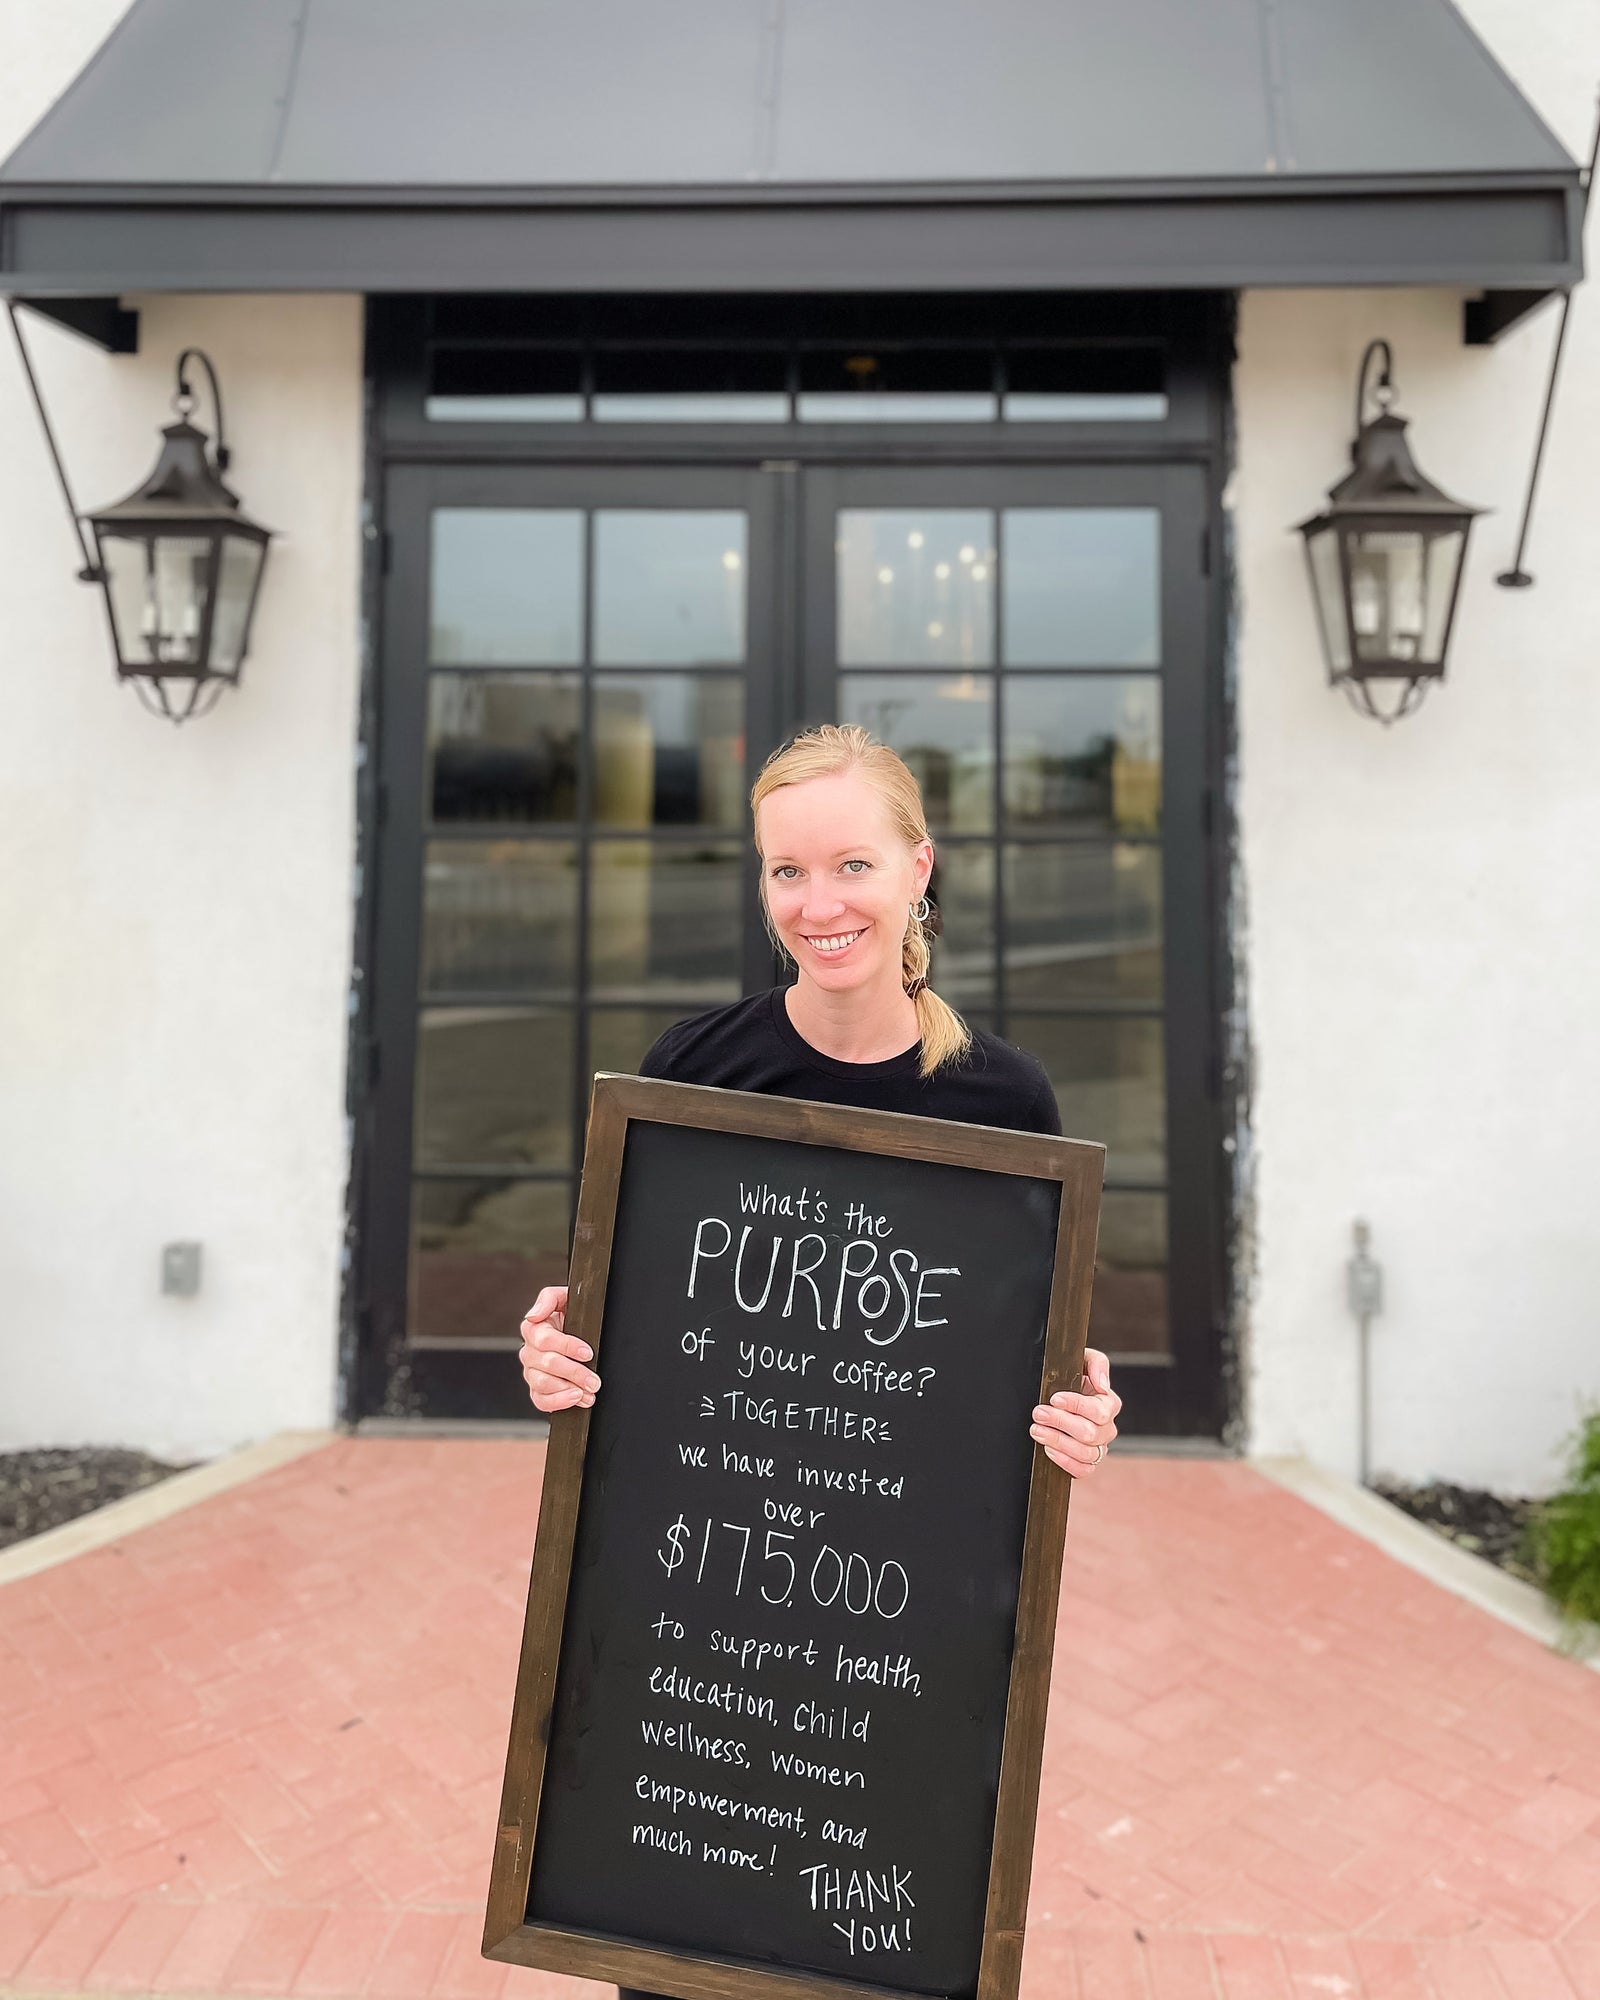 What's the
PURPOSE
of your coffee?
TOGETHER
we have invested
over
$175,000
to support health,
education, child
wellness, women
empowerment, and
much more!
THANK
YOU!